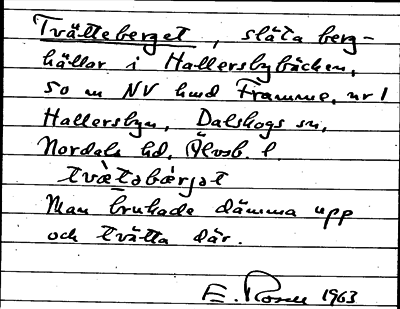 Tvätteberget, släta berg-
hällar i Hallersbybäcken,
50 m NV hmd Framme, nr 1
Hallersbyn, Dalskogs sn,
Nordals hd, Älvsb. l
tvæ̀təbæ̀rjət
Man brukade dämma upp
och tvätta där.
E. Rosen 1963